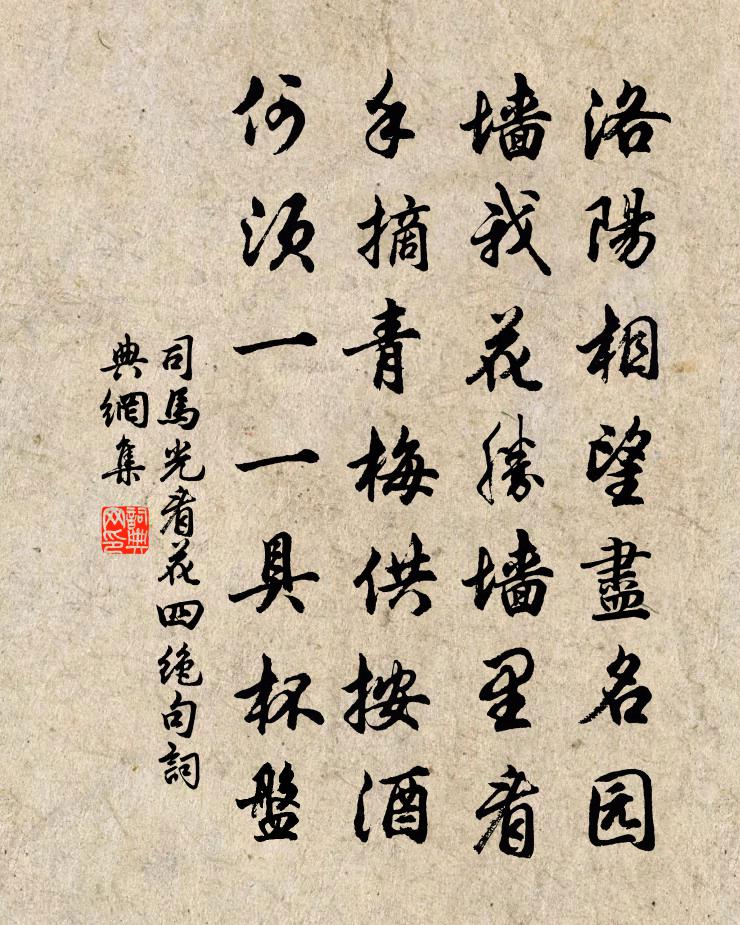 洛陽相望盡名园
墙我花勝墙里看
手摘青梅供按酒
何须一一具杯盤
司馬光看花四絶句詞
典網集
詞典
网印